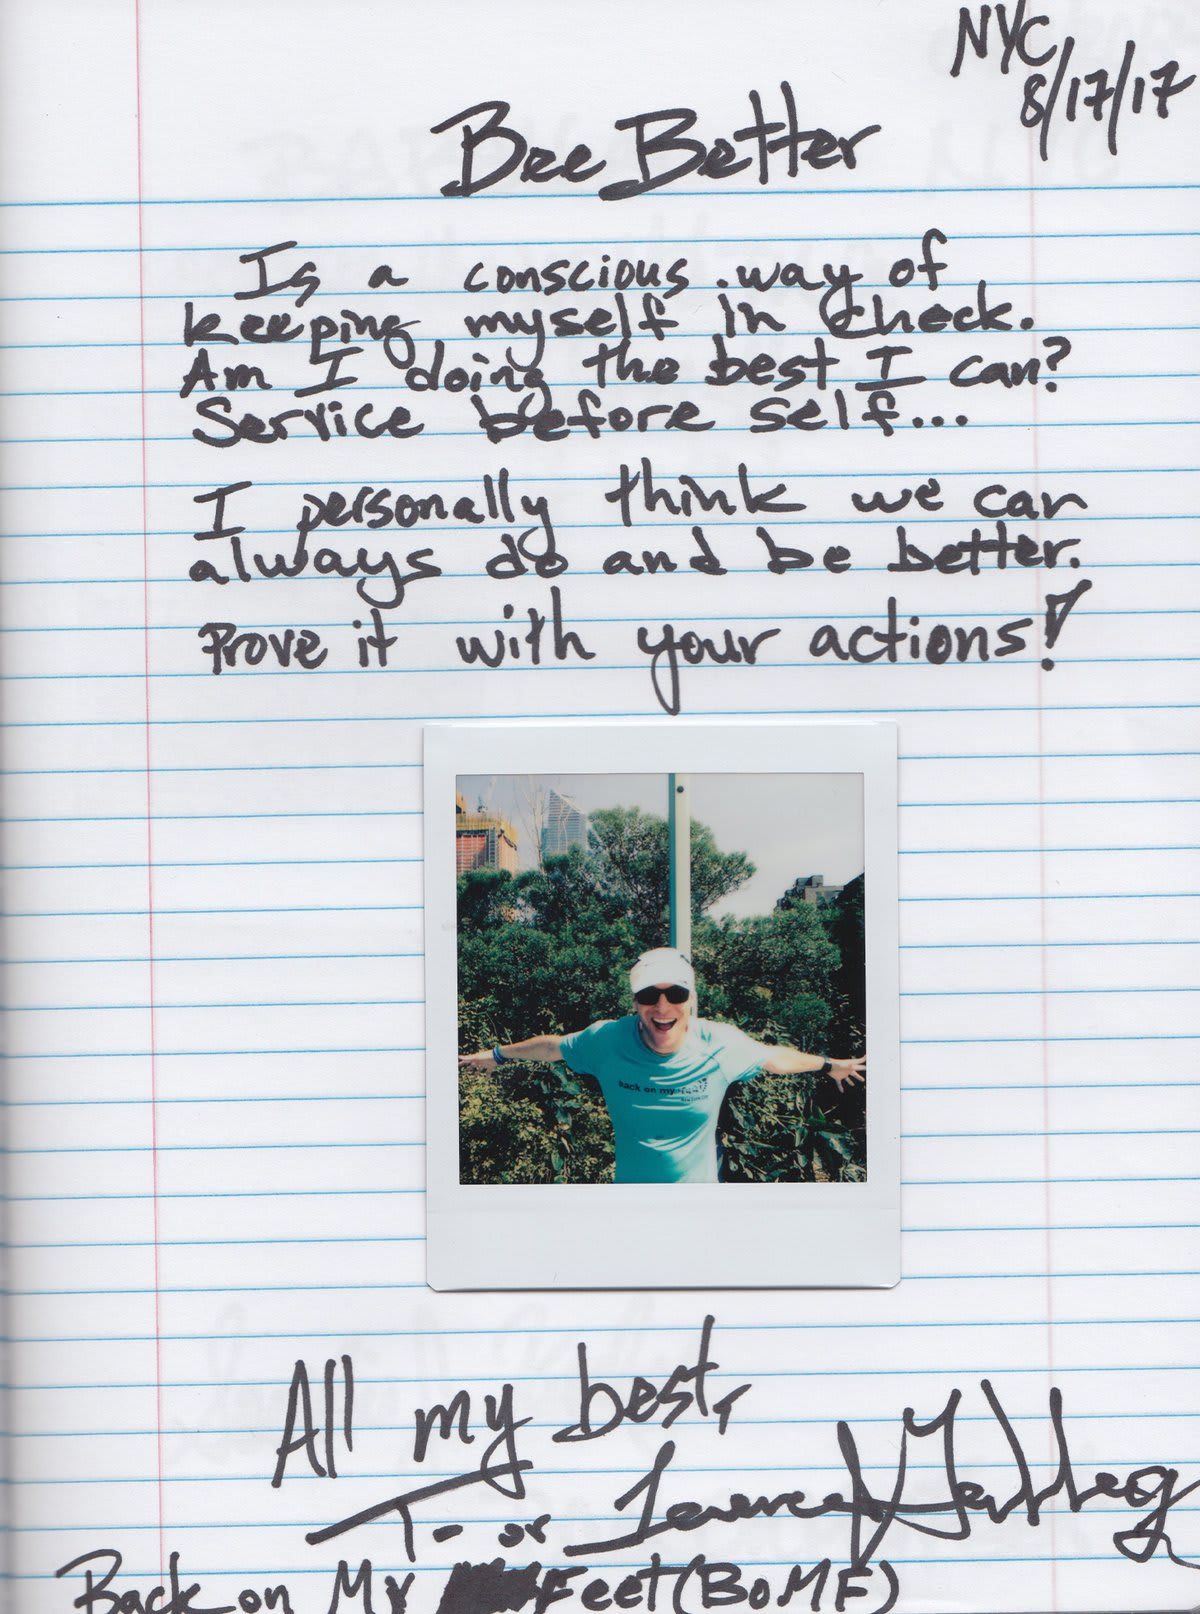 NYC
8/17/17
Bee Better
Is a conscious way of
keeping myself in check.
Am I doing the best I can?
Service before self...
I personally think we can
always do and be better.
Prove it with your actions!
back on my feet
All my best,
T- or
Back on My Feet (BoMF)